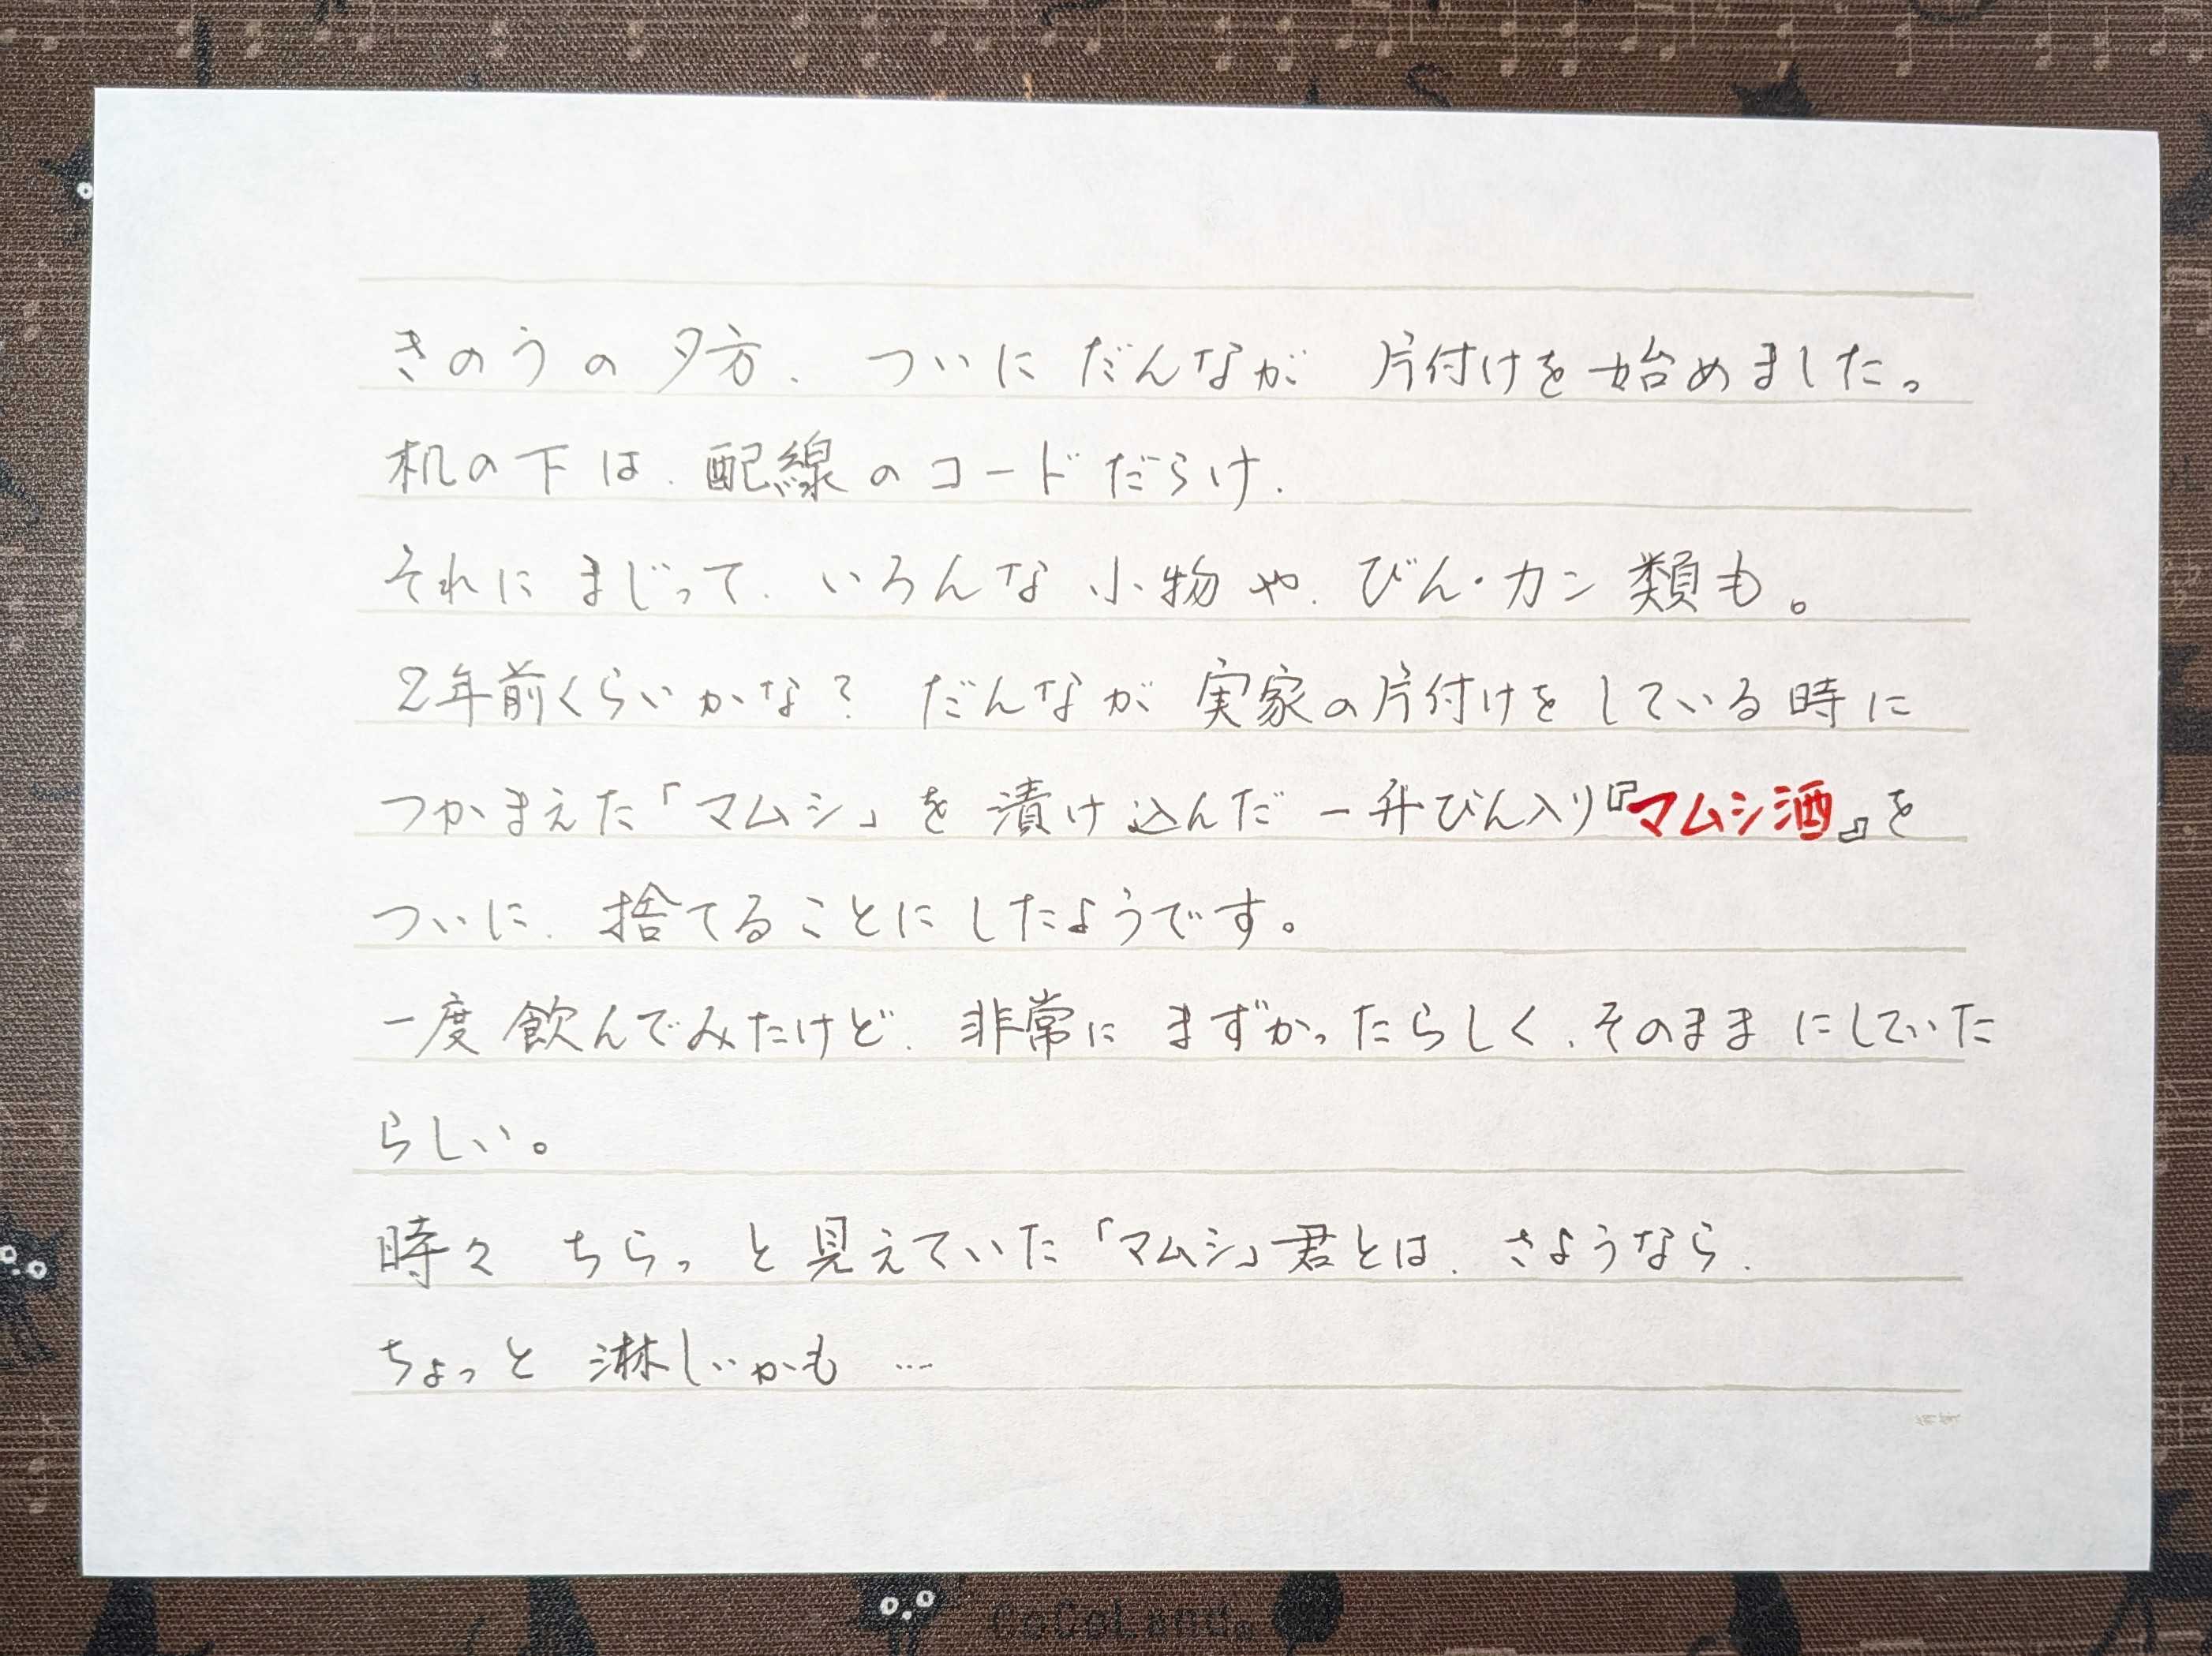 きのうの夕方、ついにだんなが 片付けを始めました。
机の下は、配線のコードだらけ、
それにまじって、いろんな小物や、びん・カン類も。
2年前くらいかな? だんなが実家の片付けをしている時に
つかまえた「マムシ」を漬け込んだ一升びん入り『マムシ酒』を
ついに、捨てることにしたようです。
一度飲んでみたけど、非常にまずかったらしく、そのままにしていた
らしい。
時々 ちらっと見えていた「マムシ」君とは、さようなら、
ちょっと 淋しいかも …
CoCoLand